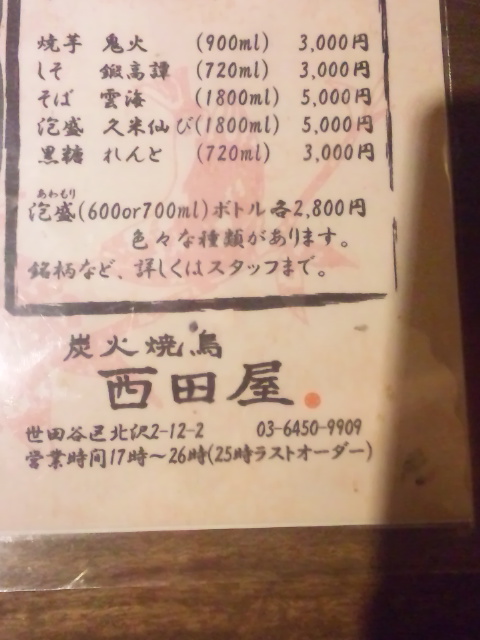 焼芋 鬼火 (900ml) 3,000円
しそ 鍛高譚 (720ml) 3,000円
そば 雲海 (1800ml) 5,000円
泡盛 久米仙び(1800ml) 5,000円
黒糖 れんと (720ml) 3,000円
あわもり
泡盛(600or700ml)ボトル各2,800円
色々な種類があります。
銘柄など、詳しくはスタッフまで。
炭火焼鳥
西田屋
世田谷区北沢2-12-2 03-6450-9909
営業時間17時～26時(25時ラストオーダー)